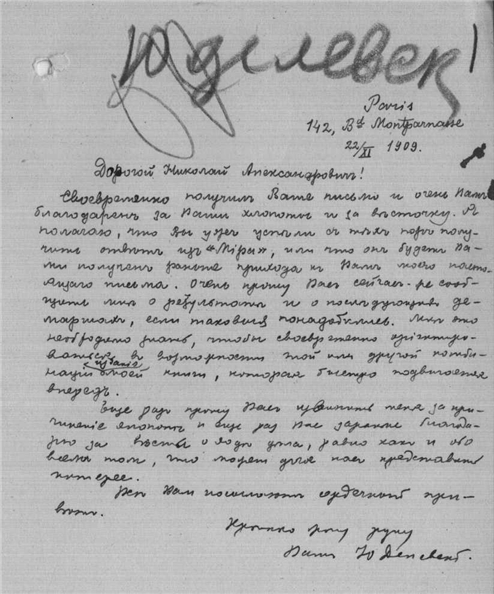 Юделевск
Paris
142, Bd Montparnasse
22/XI 1909.
Дорогой Николай Александровичъ!
Своевременно получилъ Ваше письмо и очень Вамъ
благодаренъ за Ваши хлопоты и за вѣсточку. Я
полагаю, что Вы уже успѣли съ тѣхъ поръ полу-
чить отвѣтъ изъ «Міра», или что онъ будетъ Ва-
ми полученъ раньше прихода къ Вамъ моего насто-
ящаго письма. Очень прошу Васъ сейчасъ-же сооб-
щить мнѣ о результатѣ и о послѣдующихъ де-
маршахъ, если таковые понадобились. Мнѣ это
необходимо знать, чтобы своевременно оріентиро-
ваться въ возможности той или другой комби-
націи изданія моей книги, которая быстро подвигается
впередъ.
Еще разъ прошу Васъ извинить меня за при-
чиненіе хлопотъ и еще разъ Васъ заранѣе благода-
рю за вѣсть о ходѣ дѣла, равно какъ и обо
всемъ томъ, что можетъ для насъ представить
интересъ.
Всѣ Вамъ посылаютъ сердечный при-
вѣтъ.
Крѣпко жму руку
Вашъ Ю Делевскій.